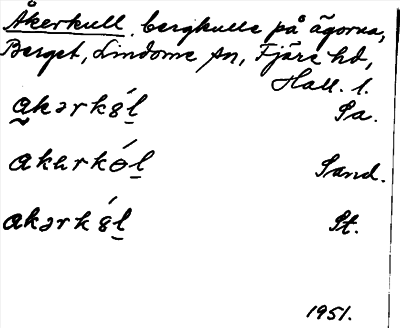 Åkerkull, bergkulle på ägorna,
Berget, Lindome sn, Fjäre hd,
Hall. l.
a̰kərkȣ́l̲ Sa.
akərkó̵l̲ Sand.
akərkȣ́l̲ St.
1951.